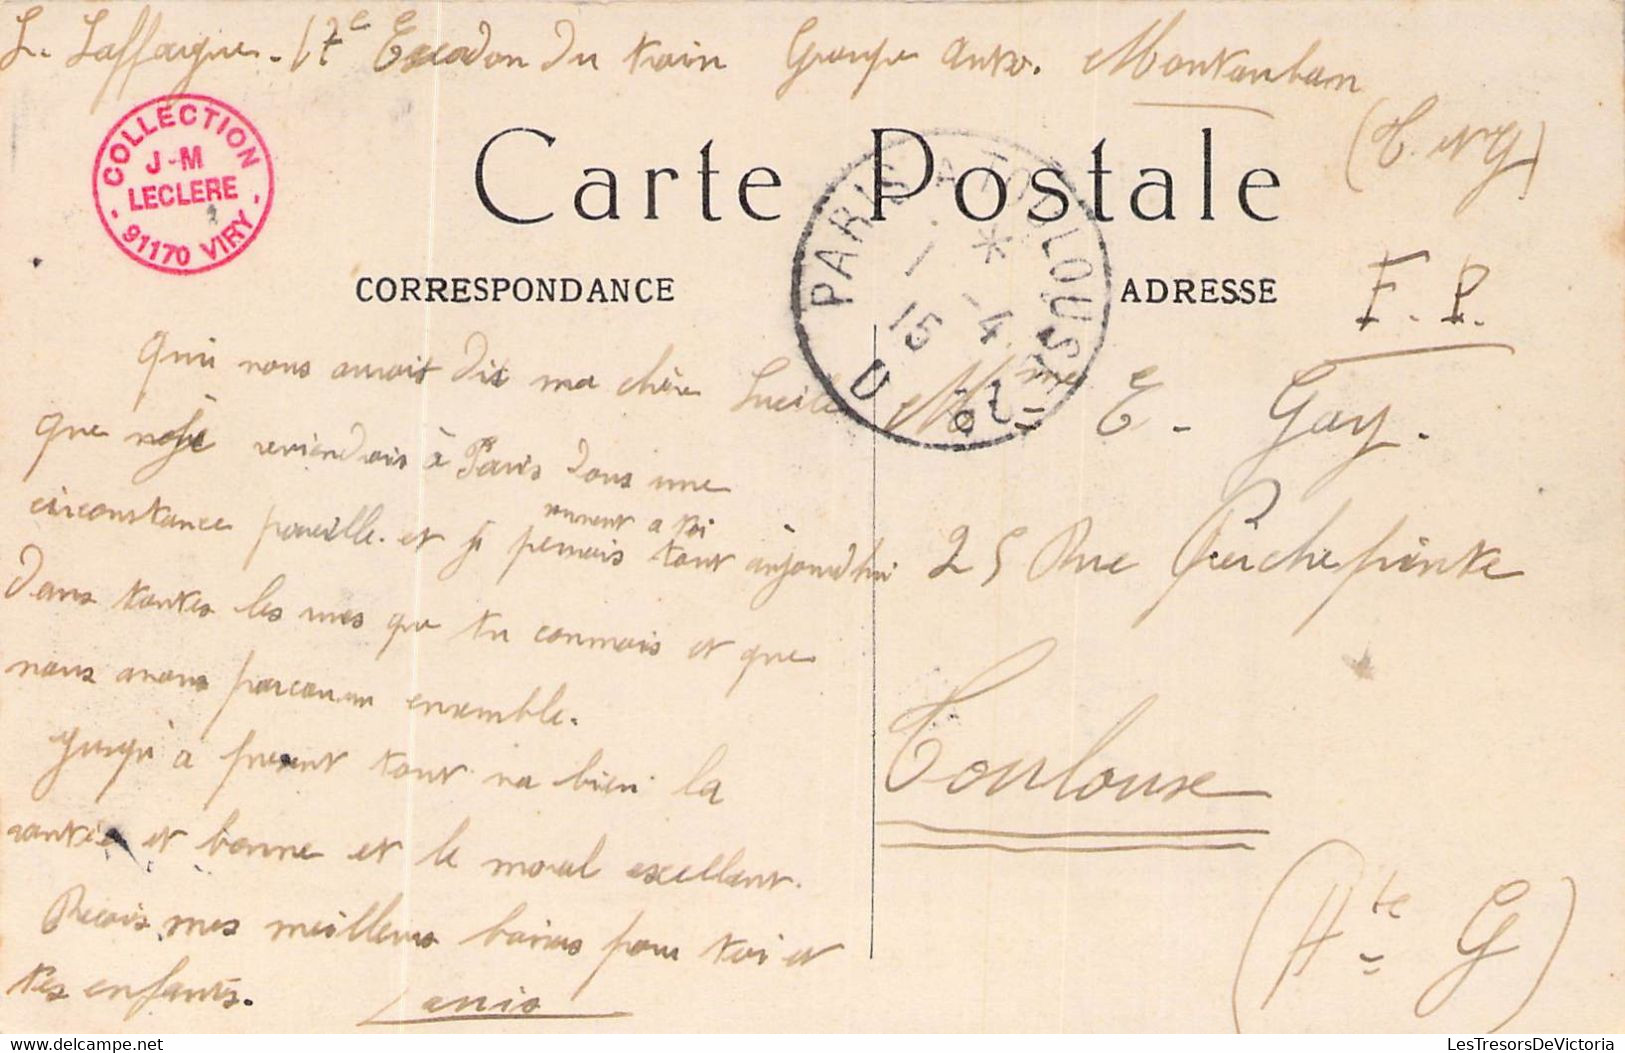 L. Laffargue - 17e Escadon du train Groupe Auto. Montauban
(T. et G)
COLLECTION
J-M
LECLERE
- 91170 VIRY -
Carte Postale
PARIS A TOULOUSE
1 * - 4
15
D
CORRESPONDANCE
ADRESSE
F. P.
Qui nous aurait dit ma chère Lucile
que je reviendrais à Paris dans une
circonstance pareille. et je pensais souvent a toi tout aujourd'hui
dans toutes les rues que tu connais et que
nous avons parcouru ensemble.
Jusqu'à present tout va bien la
santée et bonne et le moral excellent.
Recois mes meilleurs baisers pour toi et
tes enfants. Louis
Mme E - Gay.
25 Rue Perchepinte
Toulouse
(Hte G)
LesTresorsDeVictoria.com